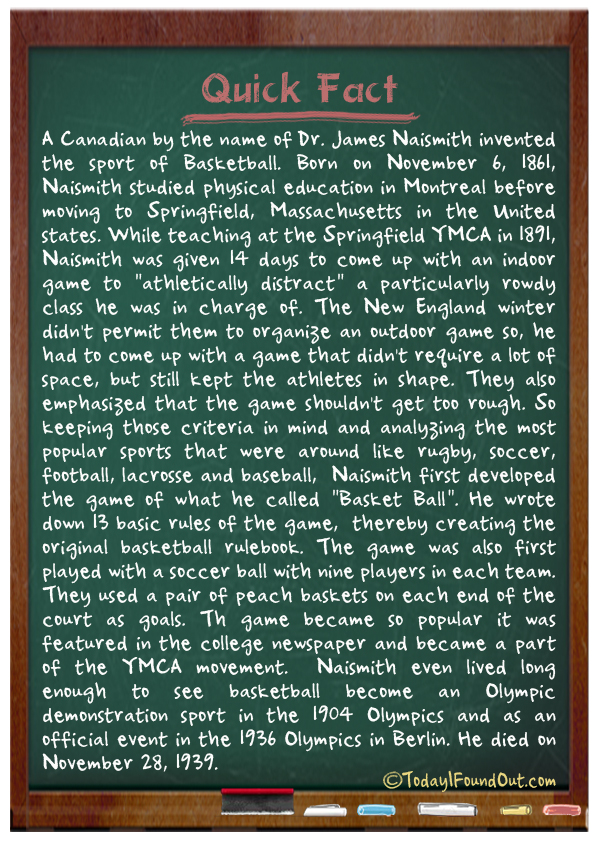 Quick Fact
A Canadian by the name of Dr. James Naismith invented
the sport of Basketball. Born on November 6, 1861,
Naismith studied physical education in Montreal before
moving to Springfield, Massachusetts in the United
states. While teaching at the Springfield YMCA in 1891,
Naismith was given 14 days to come up with an indoor
game to "athletically distract" a particularly rowdy
class he was in charge of. The New England winter
didn't permit them to organize an outdoor game so, he
had to come up with a game that didn't require a lot of
space, but still kept the athletes in shape. They also
emphasized that the game shouldn't get too rough. So
keeping those criteria in mind and analyzing the most
popular sports that were around like rugby, soccer,
football, lacrosse and baseball, Naismith first developed
the game of what he called "Basket Ball". He wrote
down 13 basic rules of the game, thereby creating the
original basketball rulebook. The game was also first
played with a soccer ball with nine players in each team.
They used a pair of peach baskets on each end of the
court as goals. Th game became so popular it was
featured in the college newspaper and became a part
of the YMCA movement. Naismith even lived long
enough to see basketball become an Olympic
demonstration sport in the 1904 Olympics and as an
official event in the 1936 Olympics in Berlin. He died on
November 28, 1939.
©TodayIFoundOut.com